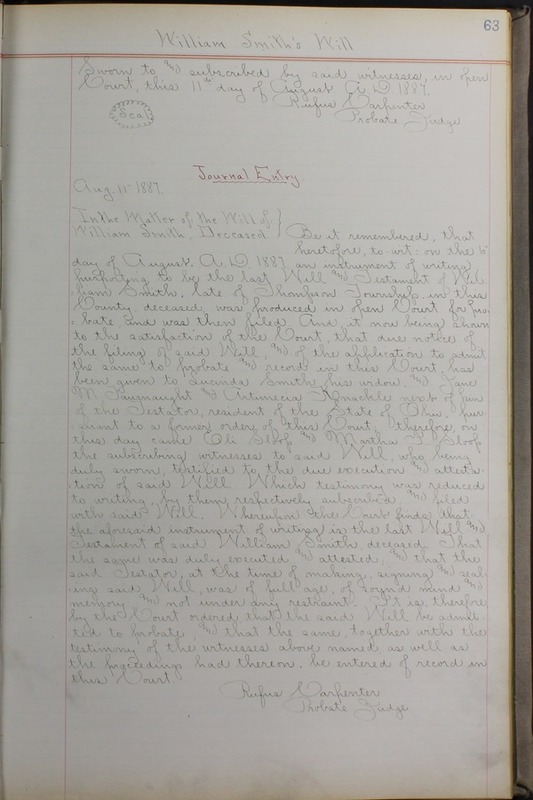 63
William Smith's Will
Sworn to and subscribed by said witnesses, in open
Court, this 11th day of August A. D. 1887.
Rufus Carpenter
Seal
Probate Judge
Journal Entry.
Aug. 11" 1887.
In the Matter of the Will of
William Smith, Deceased
Be it remembered, that
heretofore, to-wit: on the
day of August. A. D. 1887 an instrument of writing
purporting to be the last Will and Testament of Wil-
liam Smith, late of Thompson Township in this
County, deceased, was produced in open Court for pro-
bate, and was then filed. And it now being shown
to the satisfaction of the Court, that due notice of
the filing of said Will, and of the application to admit
the same to probate and record in this Court, has
been given to Lucinda Smith, his widow, and Jane
M. and Artimecia next of kin
of the Testator, resident of the State of Ohio, pur-
suant to a former order of this Court, therefore, on
this day came Eli Sloop and Martha J. Sloop
the subscribing witnesses to said Will, who being
duly sworn, testified to the due execution and attesta-
tion of said Will. Which testimony was reduced
to writing, by them respectively subscribed, and filed
with said Will. Whereupon the Court finds that
the aforesaid instrument of writing is the last Will and
Testament of said William Smith, deceased. That
the same was duly executed and attested, and that the
said Testator, at the time of making, signing and seal-
ing said Will, was of full age, of sound mind and
memory and not under any restraint. It is, therefore
by the Court ordered that the said Will be admit-
ted to probate, and that the same, together with the
testimony of the witnesses above named as well as
the proceedings had thereon, be entered of record in
this Court.
Rufus Carpenter
Probate Judge